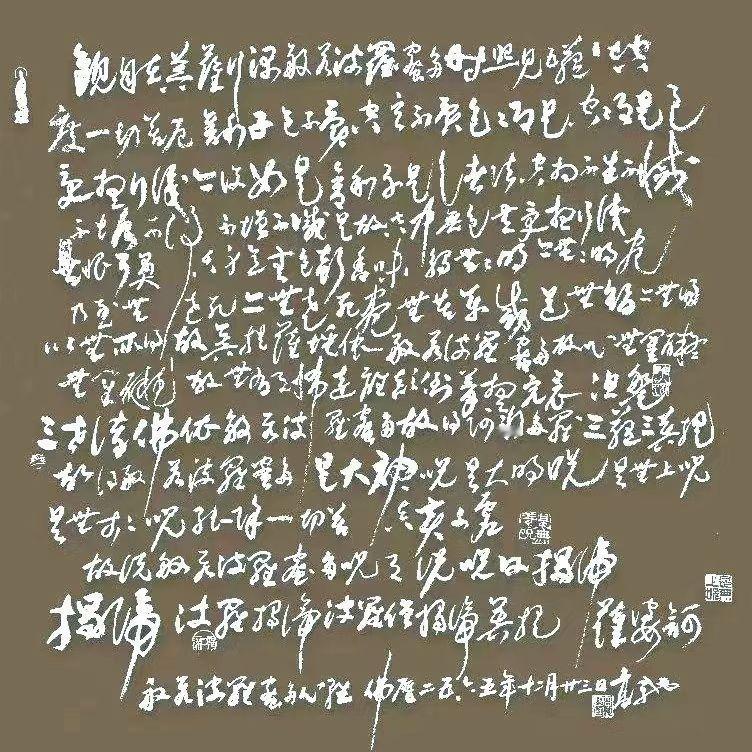 觀自在菩薩行深般若波羅蜜多時照見五蘊皆空
度一切苦厄舍利子色不異空空不異色色即是空空即是色
受想行識亦復如是舍利子是諸法空相不生不滅
不垢不淨不增不減是故空中無色無受想行識
無眼耳鼻舌身意無色聲香味觸無無明亦無無明盡
乃至無老死亦無老死盡無苦集滅道無智亦無得
以無所得故菩提薩埵依般若波羅蜜多故心無罣礙
無罣礙故無有恐怖遠離顛倒夢想究竟涅槃
三世諸佛依般若波羅蜜多故得阿耨多羅三藐三菩提
故知般若波羅蜜多是大神咒是大明咒是無上咒
是無等等咒能除一切苦真實不虛
故說般若波羅蜜多咒即說咒曰揭諦
揭諦波羅揭諦波羅僧揭諦菩提薩婆訶
般若波羅蜜多心經佛歷二五六五年十二月廿三日